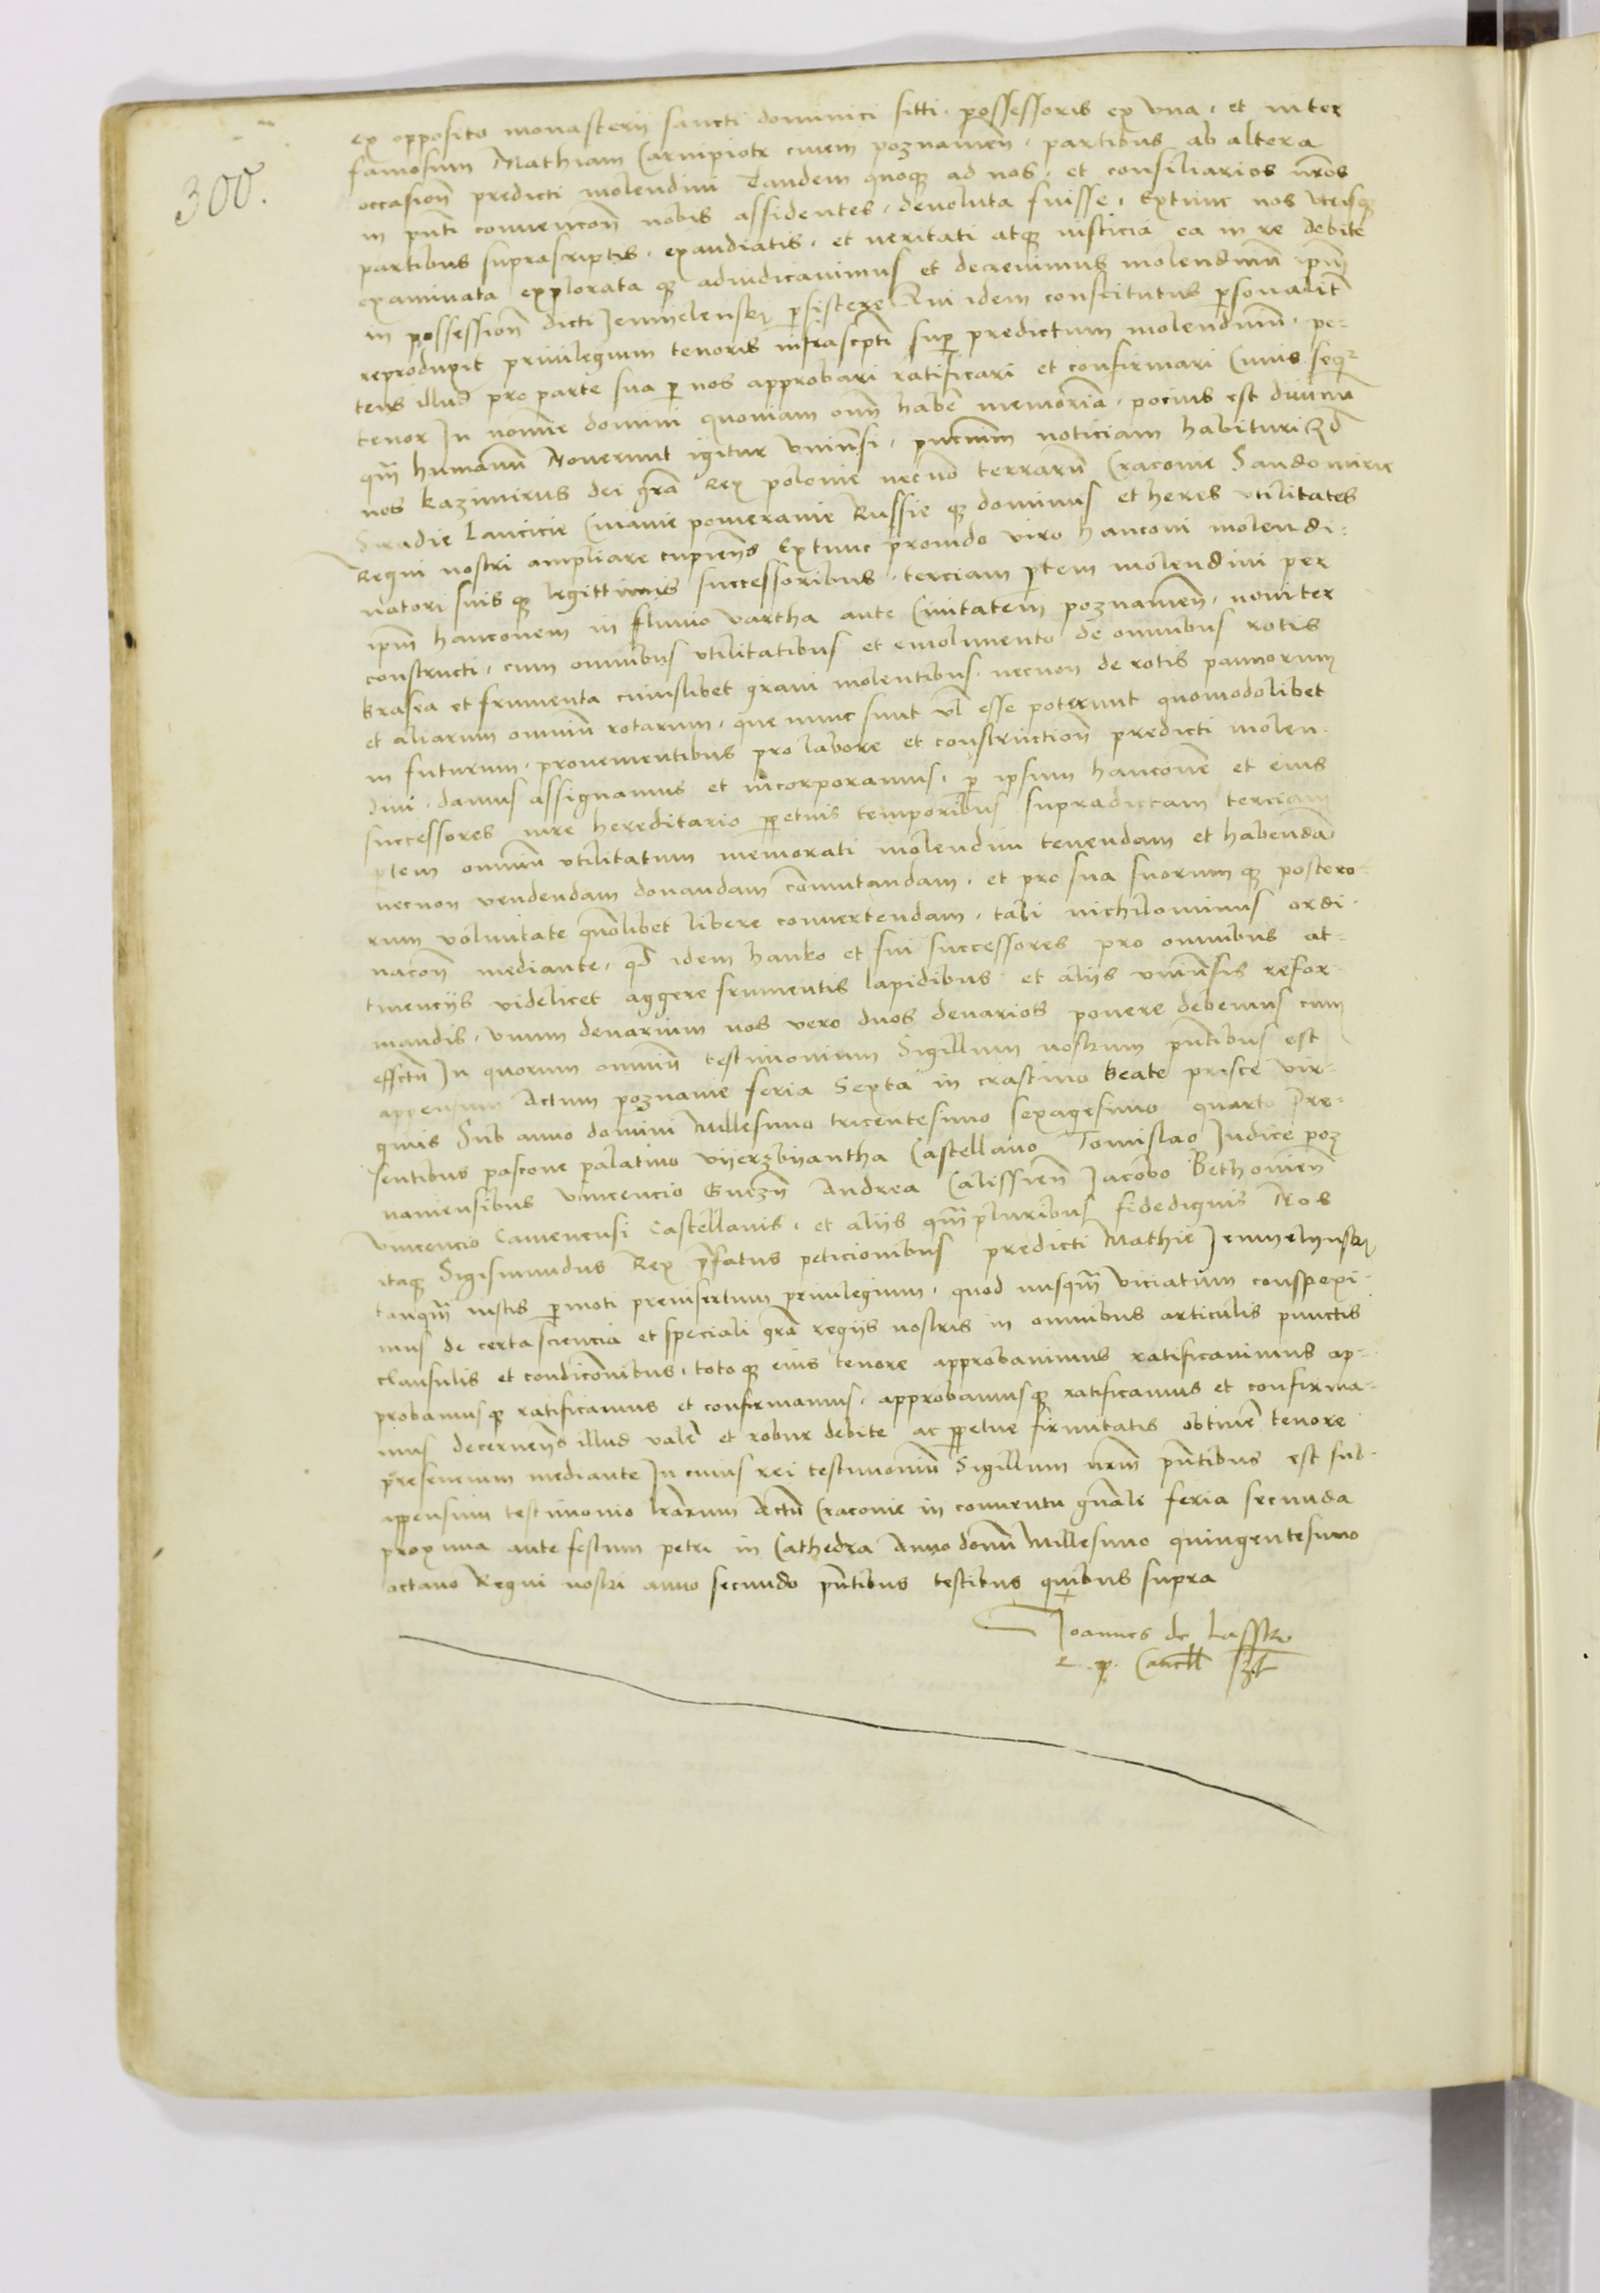 300.
ex opposito monasterij sancti dominici sitti · possessoris ex vna · et inter
famosum Mathiam Czarnipiotr ciuem poznanien̄ · partibus ab altera
occasion̄ predicti molendini Tandem quoq ad nos · et consiliarios nr̄os
in pn̄ti conuencon̄ nobis assidentes · deuoluta fuisse · Extunc nos vtrisq
partibus suprascriptis · exauditis · et veritati atq iusticia ea in re debite
examinata explorata q adiudicauimus et decreuimus molendinū ip̄m
in possession̄ dicti Jemielensky persistere Qui idem constitutus personalit̄
reproduxit priuilegium tenoris infrascpti sup predictum molendinū · pe-
tens illud pro parte sua p nos approbari ratificari et confirmari Cuius seqr
tenor In nomine domini quoniam om̄ haben̄ memoriā · pocius est diuinū
qm̄ humanū Nouerint igitur vniuersi · pn̄cium noticiam habituri Qd
nos Kazimirus dei grā Rex polonie necnō terrarū Cracouie Sandomirie
Siradie Lancicie Cuiauie pomeranie Russie q dominus et heres vtilitates
Regni nostri ampliare cupiens Extunc prouido viro hanconi molendi-
natori suis q legittimis successoribus · terciam ptem molendini per
ipm̄ hanconem in fluuio vartha ante Ciuitatem poznanien̄ · nouiter
constructi · cum omnibus vtilitatibus et emolimento de omnibus rotis
brasea et frumenta cuiuslibet grani molentibus · necnon de rotis pannorum
et aliarum omniū rotarum · que nunc sunt vl esse poterunt quomodolibet
in futurum · prouenientibus pro labore et construction̄ predicti molen-
dini · damus assignamus et incorporamus · p ipsum hanconē et eius
successores iure hereditario ppetuis temporibus supradictam terciam
ptem omniū vtilitatum memorati molendini tenendam et habendā
necnon vendendam donandam cōmutandam · et pro sua suorum q postero-
rum voluntate qūolibet libere conuertendam · tali nichilominus ordi-
nacon̄ mediante · qd idem hanko et sui successores pro omnibus at-
tinencijs videlicet aggere frumentis lapidibus et alijs vniuersis refor-
mandis · vnum denarium nos vero duos denarios ponere debemus cum
effectu In quorum omniū testimonium Sigillum nostrum pn̄tibus est
appensum Actum poznanie feria Sexta in crastino beate prisce vir-
ginis Sub anno domini Millesimo tricentesimo sexagesimo quarto Pre-
sentibus pascone palatino vijerzbijantha Castellano Tomislao Judice poz
naniensibus vincencio Gnezn̄ Andrea Calissien̄ Jacobo Bethonien̄
vincencio Camenensi Castellanis · et alijs qm̄pluribus fidedignis Nos
itaq Sigismundus Rex p̄fatus peticionibus predicti Mathie Jemyelynsky
tanqm̄ iustis pmoti preinsertum priuilegium · quod nusqm̄ viciatum conspexi-
mus de certa sciencia et speciali grā regijs nostris in omnibus articulis punctis
clausulis et condicōnibus · toto q eius tenore approbauimus ratificauimus ap-
probamus q ratificamus et confirmamus · approbamus q ratificamus et confirma-
mus decernens illud valē et robur debite ac ppetue firmitatis obtinē tenore
presencium mediante In cuius rei testimoniū Sigillum nr̄m pn̄tibus est sub-
appensum testimonio l̄rarum Actū Cracouie in conuentu gn̄ali feria secunda
proxima ante festum petri in Cathedra Anno domī Millesimo quingentesimo
octauo Regni nostri anno secundo pn̄tibus testibus quibus supra
Joannes de Lassko
r. p. Cancell̄ sst